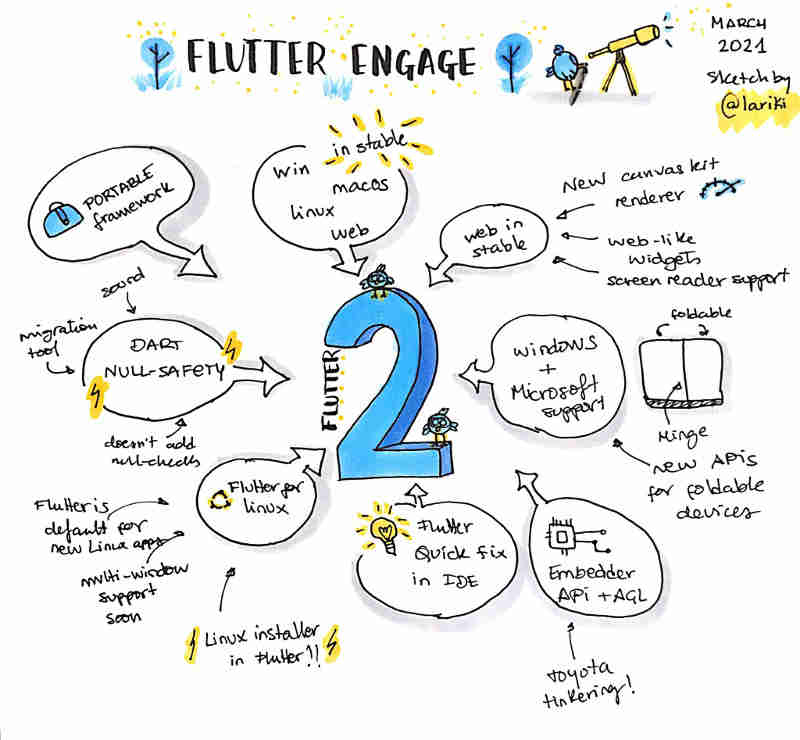 FLUTTER ENGAGE
MARCH
2021
Sketch by
@lariki
PORTABLE
framework
in stable
win
macos
linux
web
web in
stable
New canvas kit
renderer
web-like
widgets
screen reader support
sound
migration
tool
DART
NULL-SAFETY
doesn't add
null-checks
FLUTTER
2
windows
+
Microsoft
support
foldable
Hinge
new APIs
for foldable
devices
Flutter for
linux
Flutter is
default for
new Linux apps
multi-window
support
soon
Linux installer
in Flutter!!
Flutter
Quick fix
in IDE
Embedder
API + AGL
toyota
tinkering!